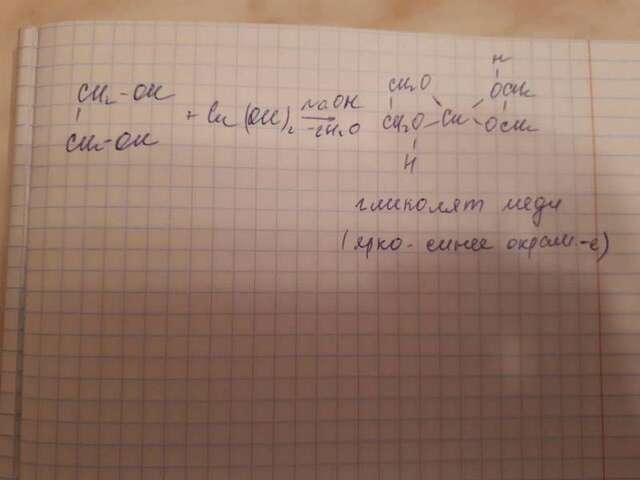 CH₂-OH
CH₂-OH
+ Cu(OH)₂
NaOH
-2H₂O
CH₂O
CH₂O
H
Cu
H
OCH₂
OCH₂
гликолят меди
(ярко-синее окраш-е)